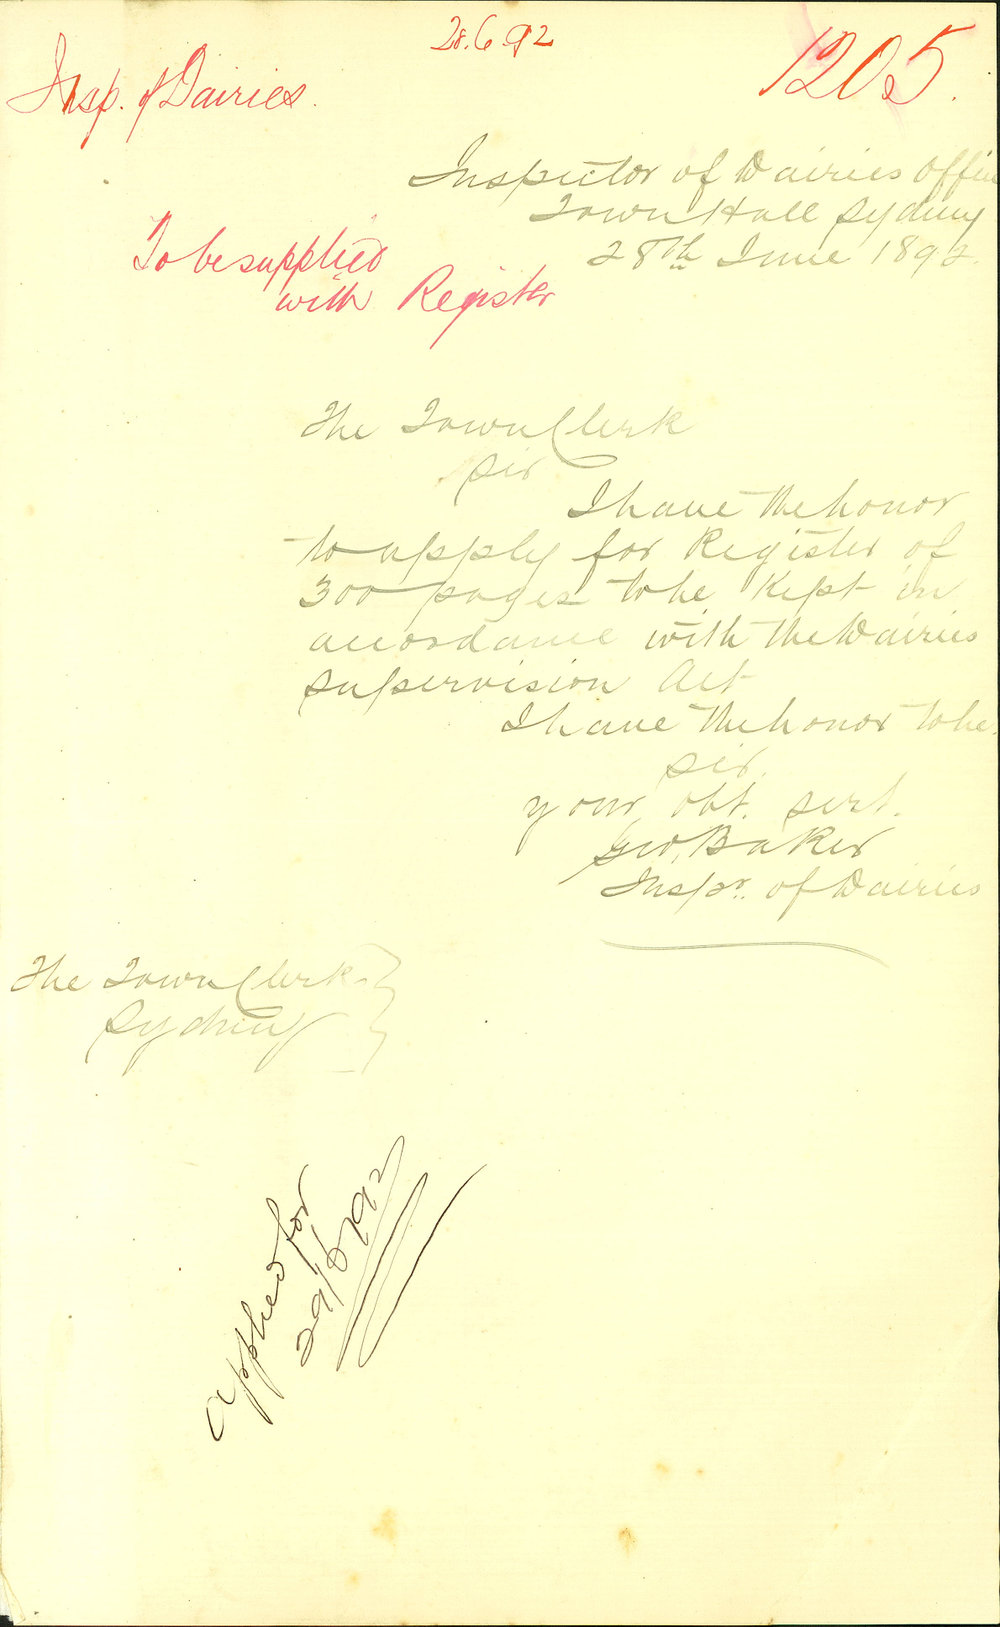 28.6.92
1205.
Insp. of Dairies.
Inspector of Dairies Office
Town Hall Sydney
28th June 1892.
To be supplied
with Register
The Town Clerk
Sir
I have the honor
to apply for Register of
300 pages to be kept in
accordance with the Dairies
Supervision Act
I have the honor to be.
Sir.
your obt. sert.
Geo. Baker
Inspr. of Dairies
The Town Clerk
Sydney
applied for
29/6/92